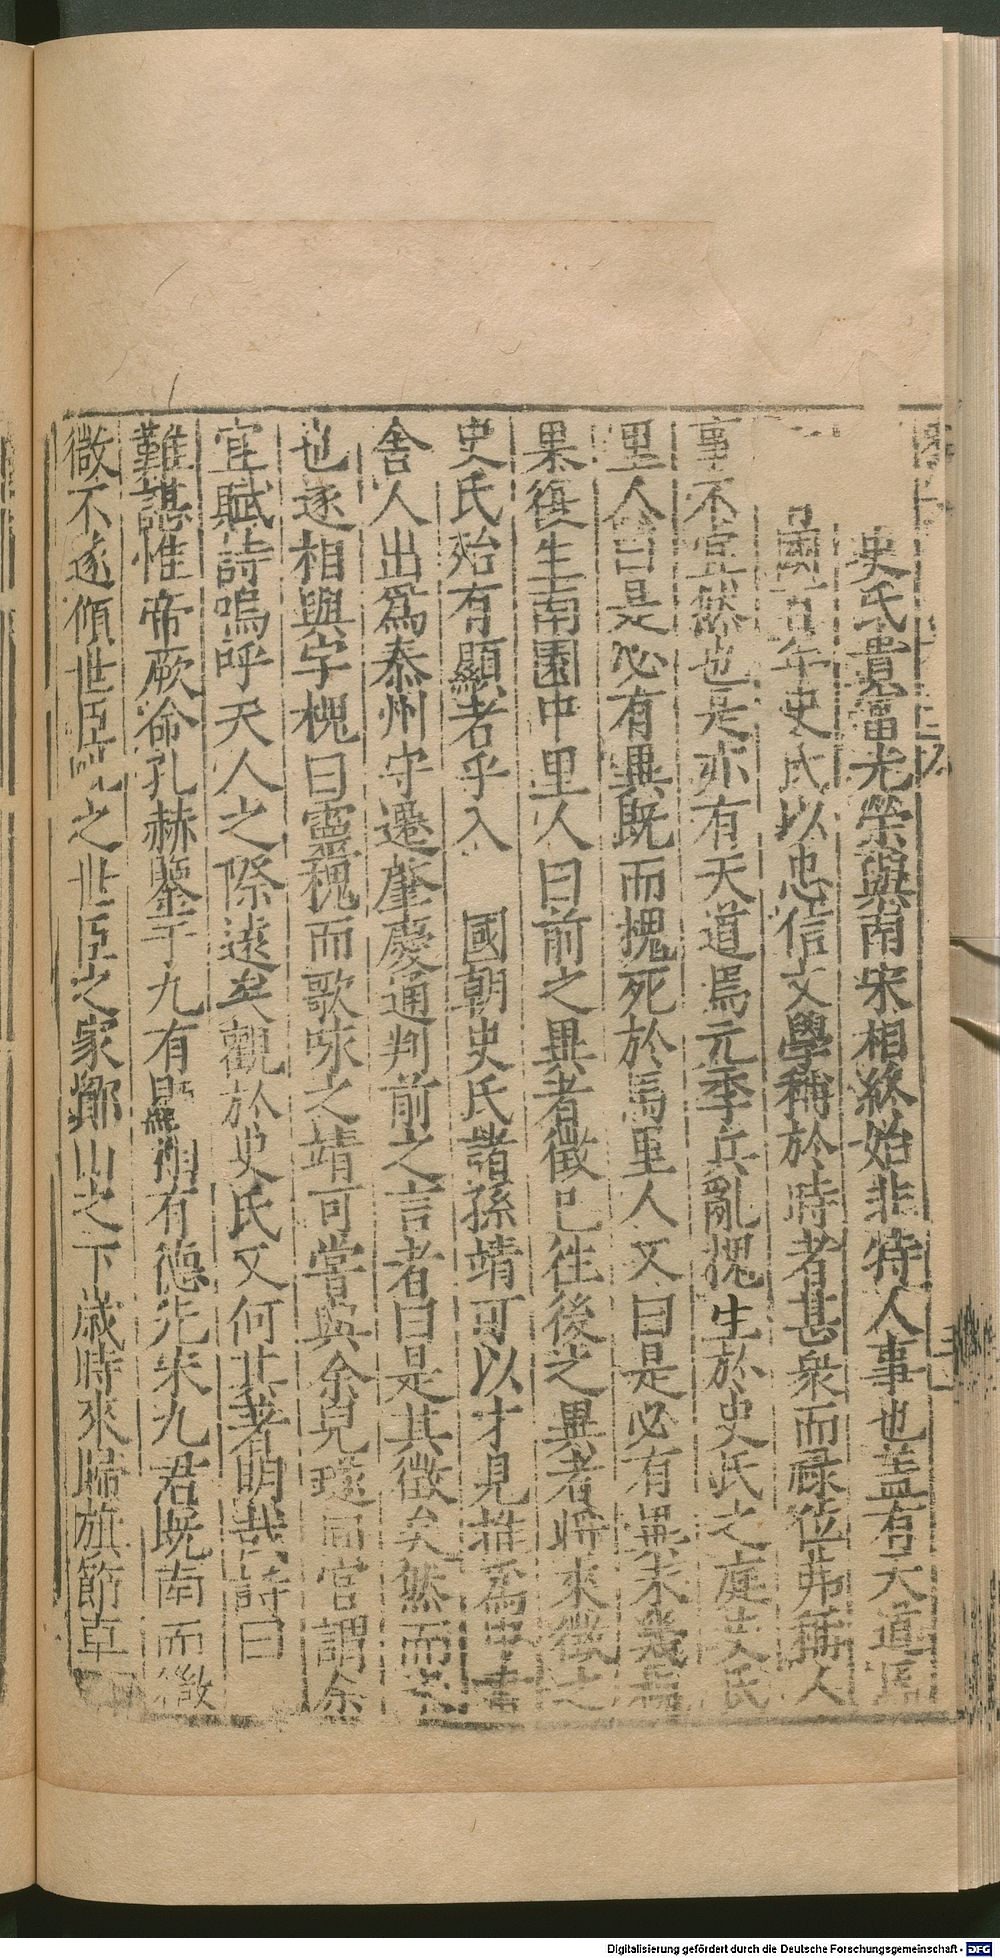 史氏貴富光榮與南宋相終始非特人事也蓋有天道焉
國百年史氏以忠信文學稱於時者甚衆而祿位弗稱人
事不宜然也是亦有天道焉元季兵亂槐生於史氏之庭史氏
里人曰是必有異既而槐死於焉里人又曰是必有異未幾焉
果復生南園中里人曰前之異者徵已徃後之異者將來徵之
史氏殆有顯者乎入 國朝史氏諸孫靖可以才見推爲中書
舍人出爲泰州守遷肇慶通判前之言者曰是其徵矣然而
也遂相與字槐曰靈槐而歌咏之靖可嘗與余兄 同官謂余
宜賦詩嗚呼天人之際遠矣觀於史氏又何其著明哉詩曰
難諶惟帝厥命孔赫鑒于九有顯相有德先宋九君既南而微
微不遂傾世臣 之世臣之家鄮山之下歲時來歸旗節
Digitalisierung gefördert durch die Deutsche Forschungsgemeinschaft - DFG